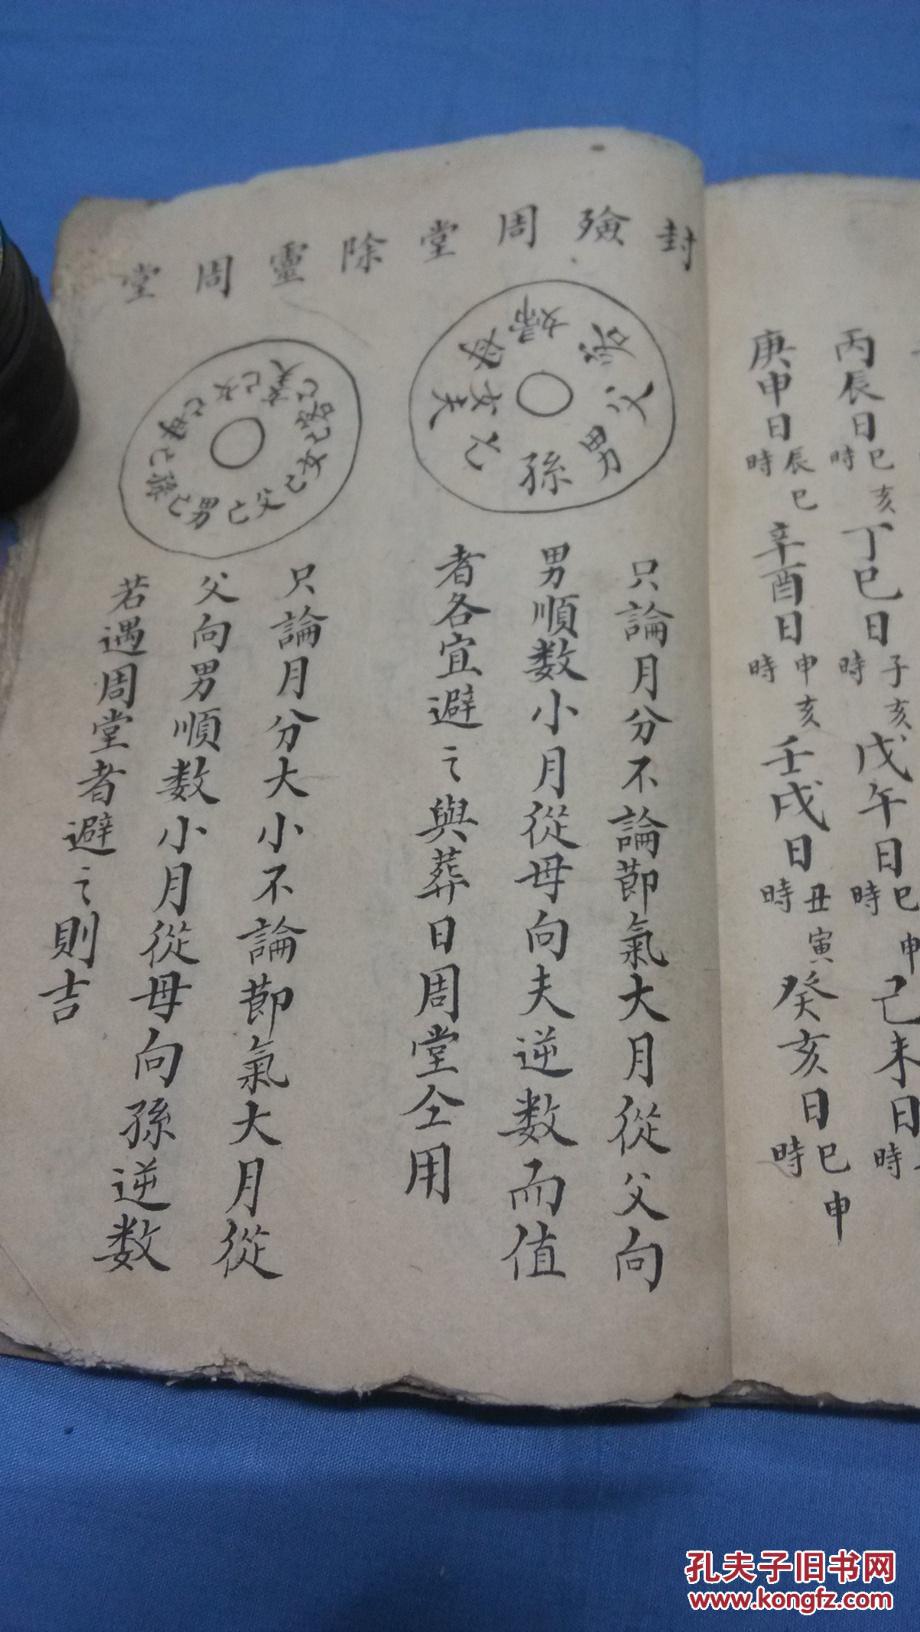 丙辰日巳亥時丁巳日子亥時戊午日巳申時己未日時
庚申日辰巳時辛酉日申亥時壬戌日丑寅時癸亥日巳申時
封殮周堂除靈周堂
婦
客
父
男
孫
亡
女夫
母
只論月分不論節氣大月從父向
男順数小月從母向夫逆数而值
者各宜避之與葬日周堂仝用
亡客
亡女
亡父
亡男
亡孫
亡母
亡女
只論月分大小不論節氣大月從
父向男順数小月從母向孫逆数
若遇周堂者避之則吉
孔夫子旧书网
www.kongfz.com